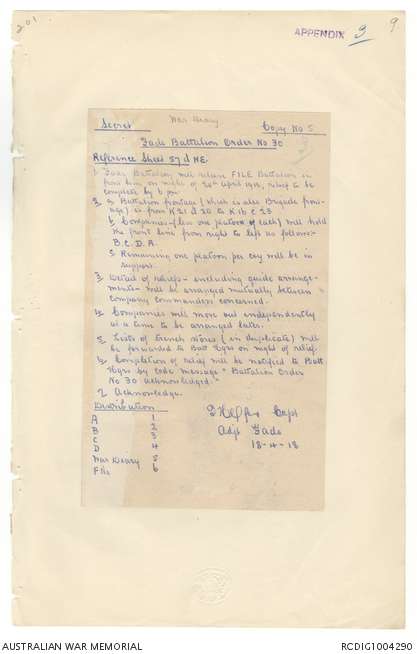 201
APPENDIX 3
9.
War Diary
Secret Copy No 5
Fade Battalion Order No 30
Reference Sheet 57d NE.
1 Fade Battalion will relieve FILE Battalion in
front line on night of 20th April 1918, relief to be
complete by 6 pm
2 a Battalion frontage (which is also Brigade front-
age) is from K 21 d 20 to K 16 c 23
b Companies (less one platoon of each) will hold
the front line from right to left as follows:-
B.C.D.A.
c Remaining one platoon per coy will be in
support.
3 Detail of reliefs - including guide arrange-
ments - will be arranged mutually between
company commanders concerned.
4 Companies will move out independently
at a time to be arranged later.
5 Lists of trench stores (in duplicate) will
be forwarded to Batt Hqrs on night of relief.
6 Completion of relief will be notified to Batt
Hqrs by code message "Battalion Order
No 30 Acknowledged"
7 Acknowledge.
Distribution
A 1
B 2
C 3
D 4
War Diary 5
File 6
Capt
Adjt Fade
18-4-18
AUSTRALIAN WAR MEMORIAL
RCDIG1004290